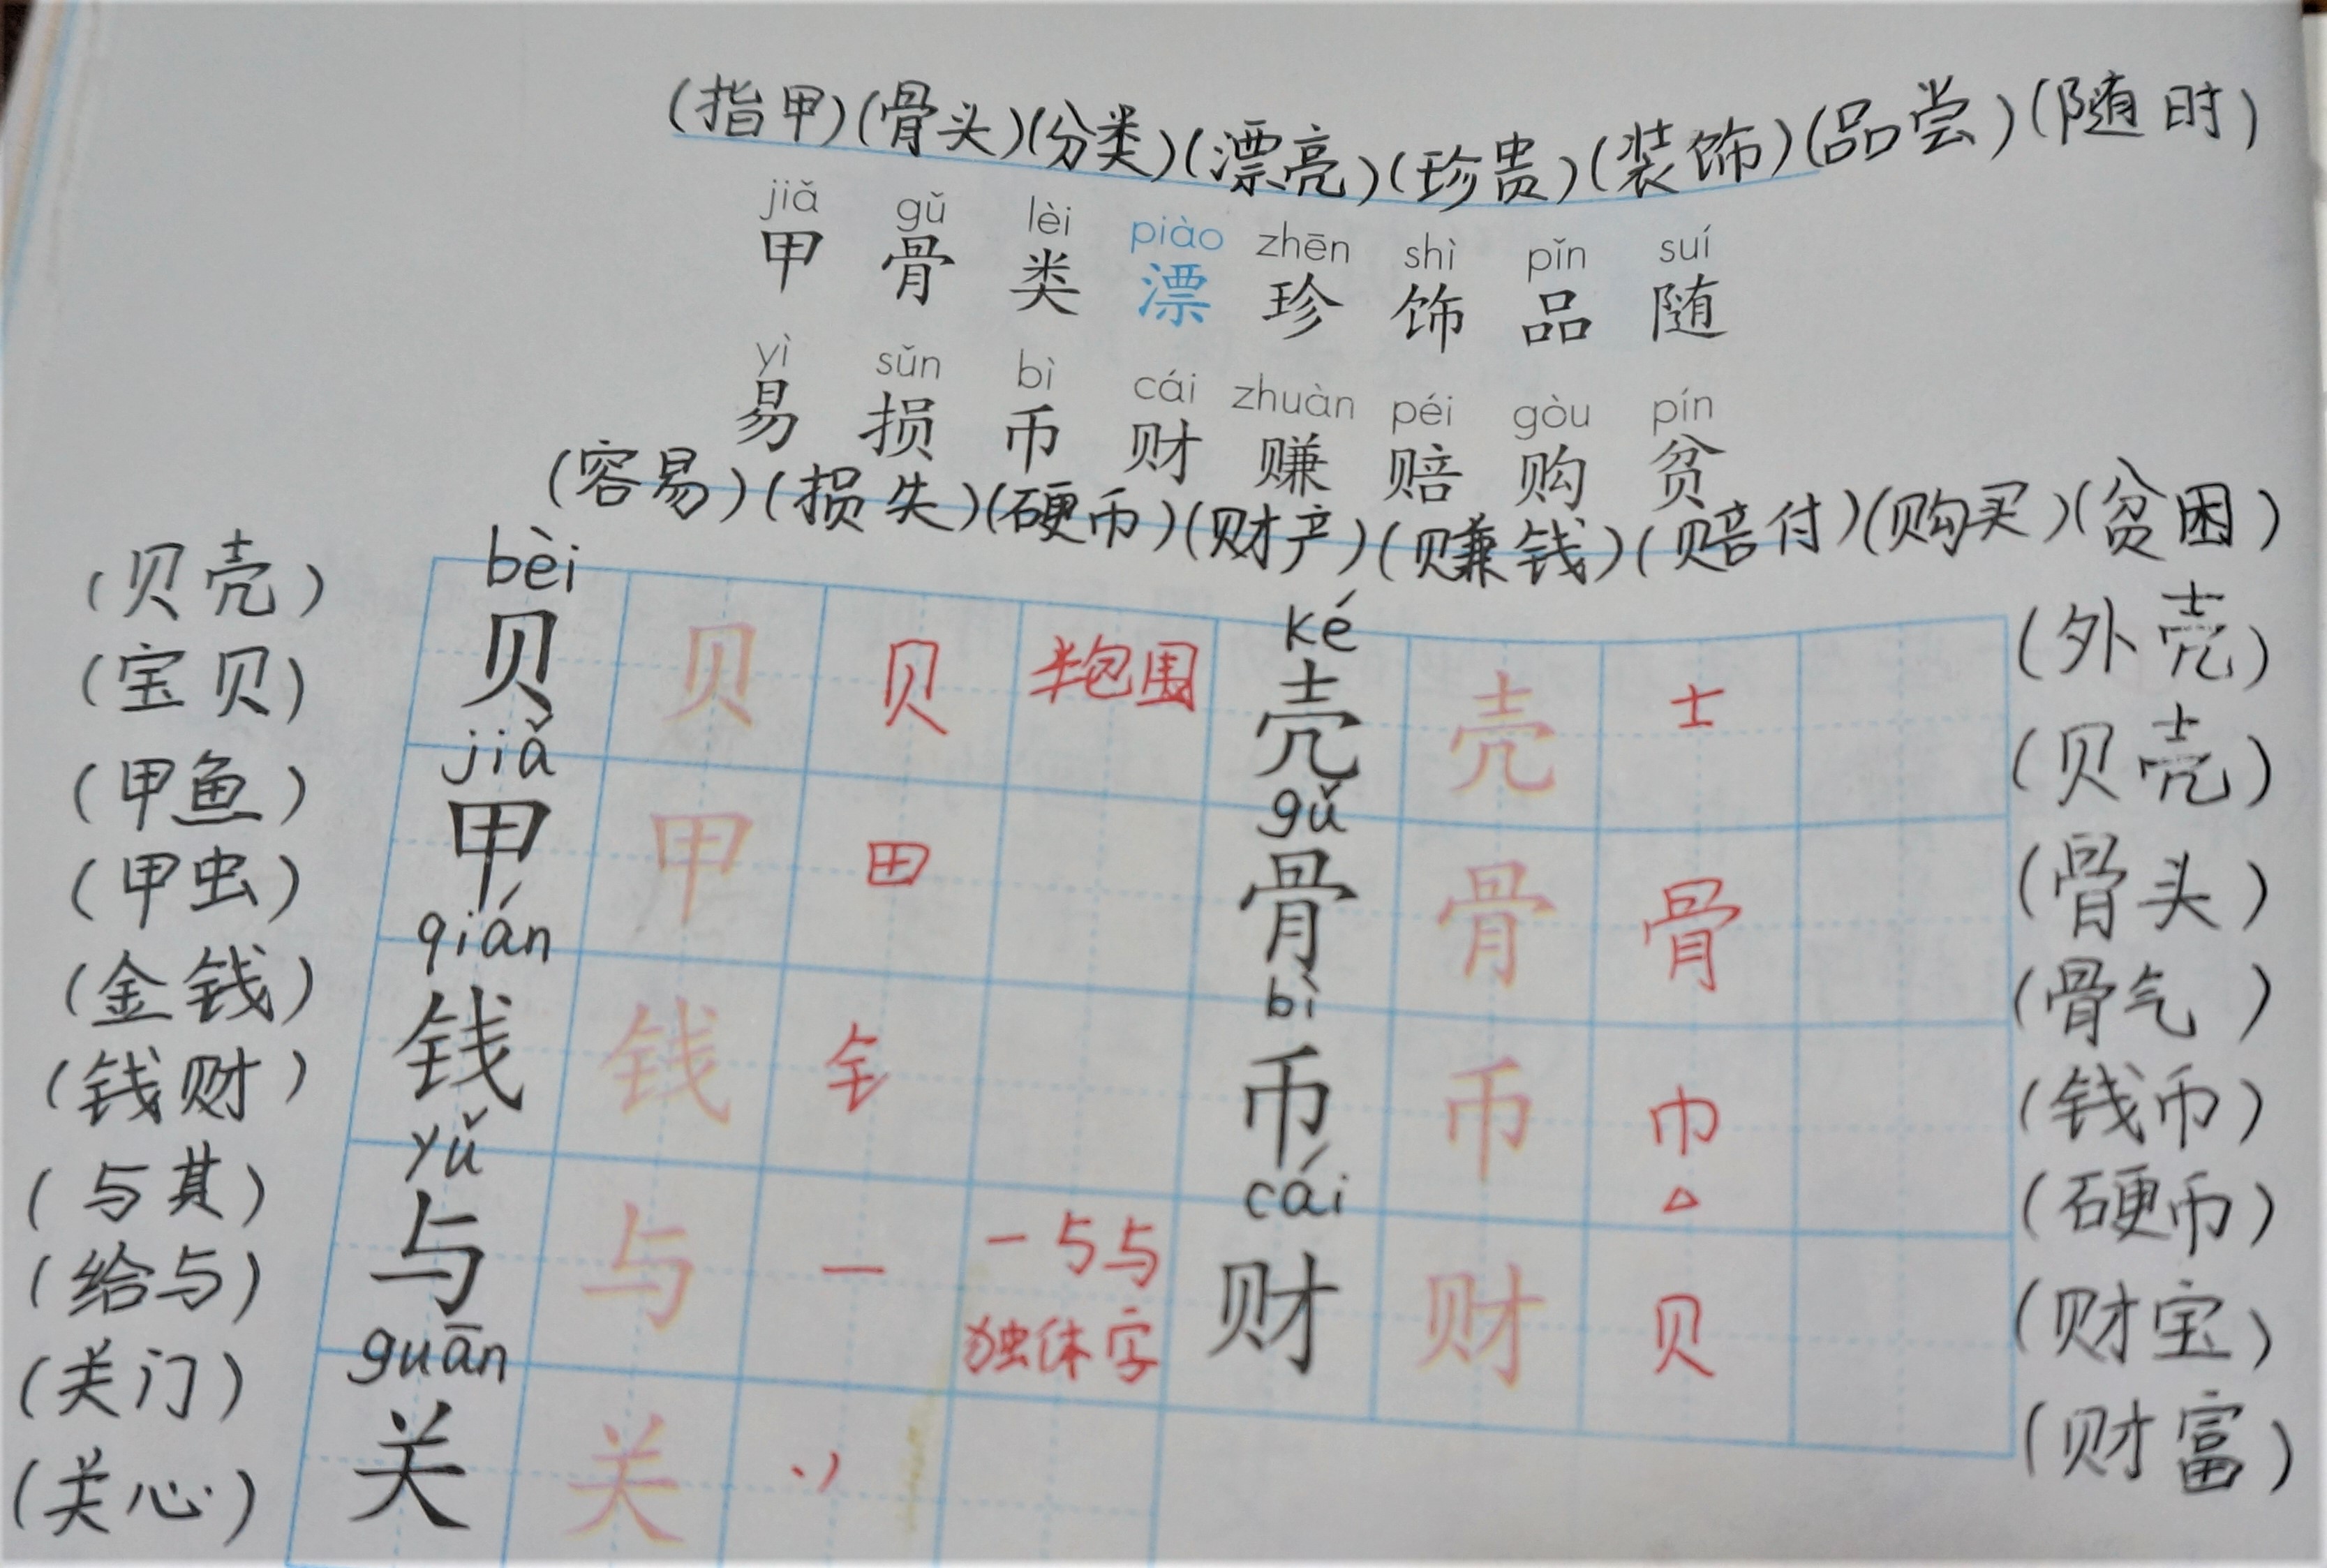 (指甲)(骨头)(分类)(漂亮)(珍贵)(装饰)(品尝)(随时)
jiǎ gǔ lèi piào zhēn shì pǐn suí
甲 骨 类 漂 珍 饰 品 随
yì sǔn bì cái zhuàn péi gòu pín
易 损 币 财 赚 赔 购 贫
(容易)(损失)(硬币)(财产)(赚钱)(赔付)(购买)(贫困)
bèi ké
(贝壳) 贝 贝 贝 半包围 壳 壳 士 (外壳)
(宝贝) (贝壳)
jiǎ gǔ
(甲鱼) 甲 甲 田 骨 骨 骨 (骨头)
(甲虫) (骨气)
qián bì
(金钱) 钱 钱 钅 币 币 巾 (钱币)
(钱财) (硬币)
yǔ cái
(与其) 与 与 一 一 与 与 财 财 贝 (财宝)
(给与) 独体字 (财富)
guān
(关门) 关 关 丷
(关心)